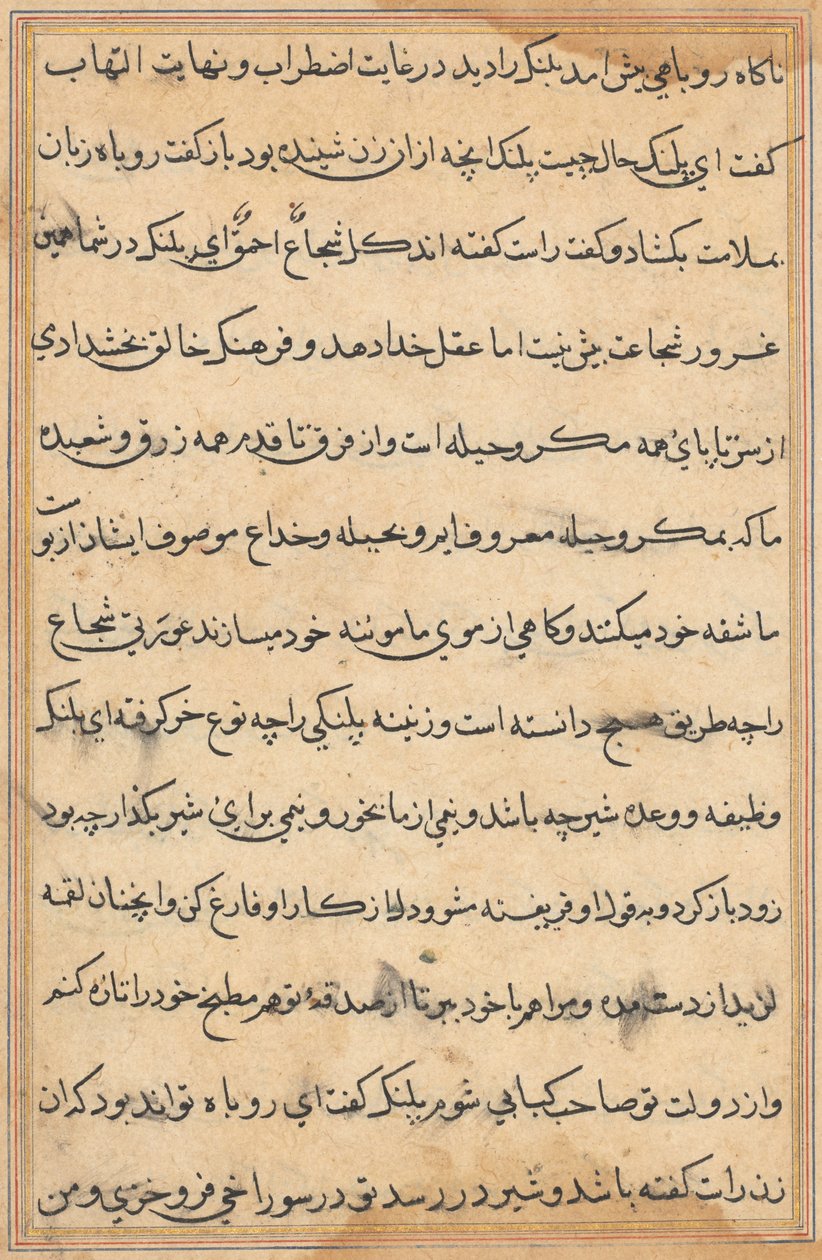 ناکاه روباهی پیش امد پلنک را دید در غایت اضطراب و نهایت التهاب
کفت ای پلنک حال چیست پلنک انچه از ان زن شینده بود باز کفت روباه زبان
بملامت بکشاد و کفت راست کفته اند کل شجاعٌ احمقٌ ای پلنک در شما همین
غرور شجاعت بیش نیست اما عقل خدا دهد و فرهنک خالق بخشد ادمی
از سر تا پای همه مکر و حیله است و از فرق تا قدم همه زرق و شعبده
ما که بمکر و حیله معروف ایم و بحیله و خداع موصوف ایشان از پوست
ما شقه خود میکنند و کاهی از موی ما موئنه خود میسازند عورتی شجاع
را چه طریق هیچ دانسته است و زنینه پلنکی را چه نوع خر کرفته ای پلنک
وظیفه و وعده شیر چه باشد و نیمی از ما بخور و نیمی برای شیر بکذار چه بود
زود باز کرد و به قول او فریفته مشو و دل از کار او فارغ کن و انچنان لقمه
لزید از دست مده و مرا هم با خود ببر تا از صدقهٔ تو هم مطبخ خود را تازه کنم
و از دولت تو صاحب کبابی شوم پلنک کفت ای روباه تواند بود که ان
زن راست کفته باشد و شیر در رسد تو در سوراخی فرو خزی و من